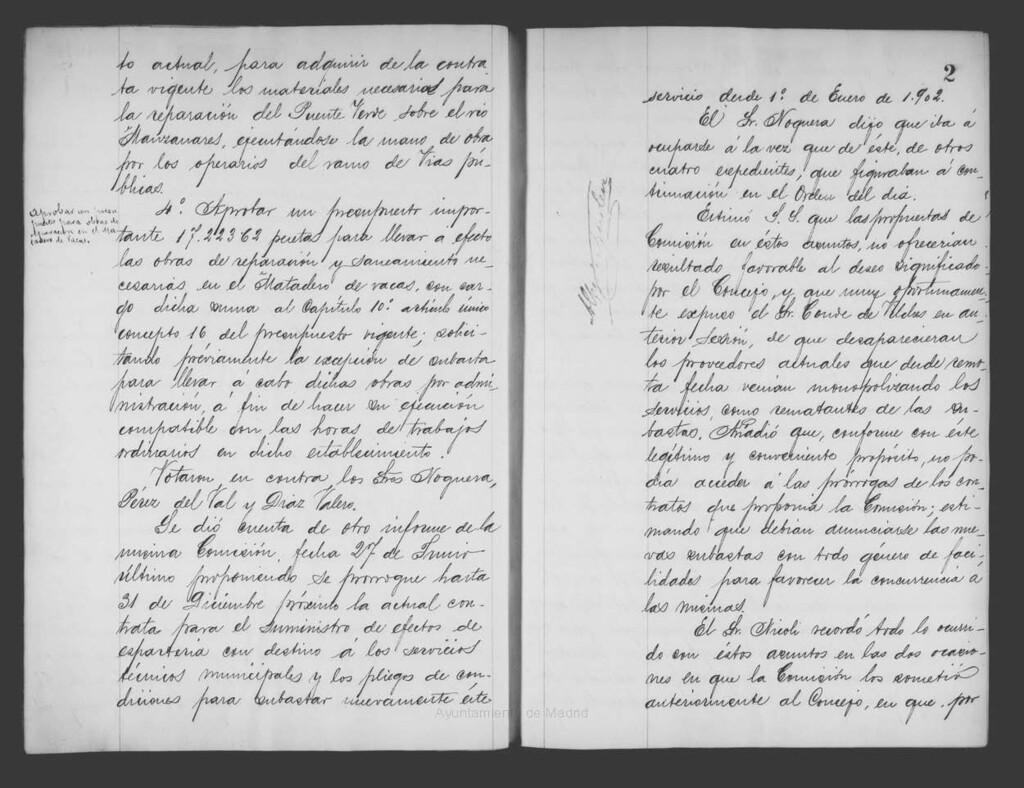 to actual, para adquirir de la contra-
ta vigente los materiales necesarios para
la reparación del Puente Verde sobre el río
Manzanares, ejecutándose la mano de obra
por los operarios del ramo de Vías pú-
blicas.
Aprobar un presu-
puesto para obras de
reparación en el Ma-
tadero de Vacas.
4º. Aprobar un presupuesto impor-
tante 17.223'62 pesetas para llevar á efecto
las obras de reparación y saneamiento ne-
cesarias en el Matadero de vacas, con car-
go dicha suma al Capítulo 10º. artículo único
concepto 16 del presupuesto vigente; solici-
tando préviamente la excepción de subasta
para llevar á cabo dichas obras por admi-
nistración, á fin de hacer su ejecución
compatible con las horas de trabajos
ordinarios en dicho establecimiento.
Votaron en contra los Sres Noguera,
Pérez del Val y Díaz Valero.
Se dió cuenta de otro informe de la
misma Comisión, fecha 27 de Junio
último proponiendo se prorrogue hasta
31 de Diciembre próximo la actual con-
trata para el suministro de efectos de
espartería con destino á los servicios
técnicos municipales y los pliegos de con-
diciones para subastar nuevamente éste
Ayuntamiento de Madrid
2
servicio desde 1º. de Enero de 1.902.
El Sr. Noguera dijo que iba á
ocuparse á la vez que de éste, de otros
cuatro expedientes, que figuraban á con-
tinuación en el Orden del día.
Estimó S.S. que las propuestas de
Comisión en éstos asuntos, no ofrecerían
resultado favorable al deseo significado
por el Concejo, y que muy oportunamen-
te expuso el Sr. Conde de Vilches en an-
terior Sesión, de que desaparecieran
los proveedores actuales que desde remo-
ta fecha venían monopolizando los
servicios, como rematantes de las su-
bastas. Añadió que, conforme con éste
legítimo y conveniente propósito, no po-
día acceder á las prórrogas de los con-
tratos que proponía la Comisión; esti-
mando que debían anunciarse las nue-
vas subastas con todo género de faci-
lidades para favorecer la concurrencia á
las mismas.
El Sr. Nicoli recordó todo lo ocurri-
do con éstos asuntos en las dos ocasio-
nes en que la Comisión los sometió
anteriormente al Concejo, en que por